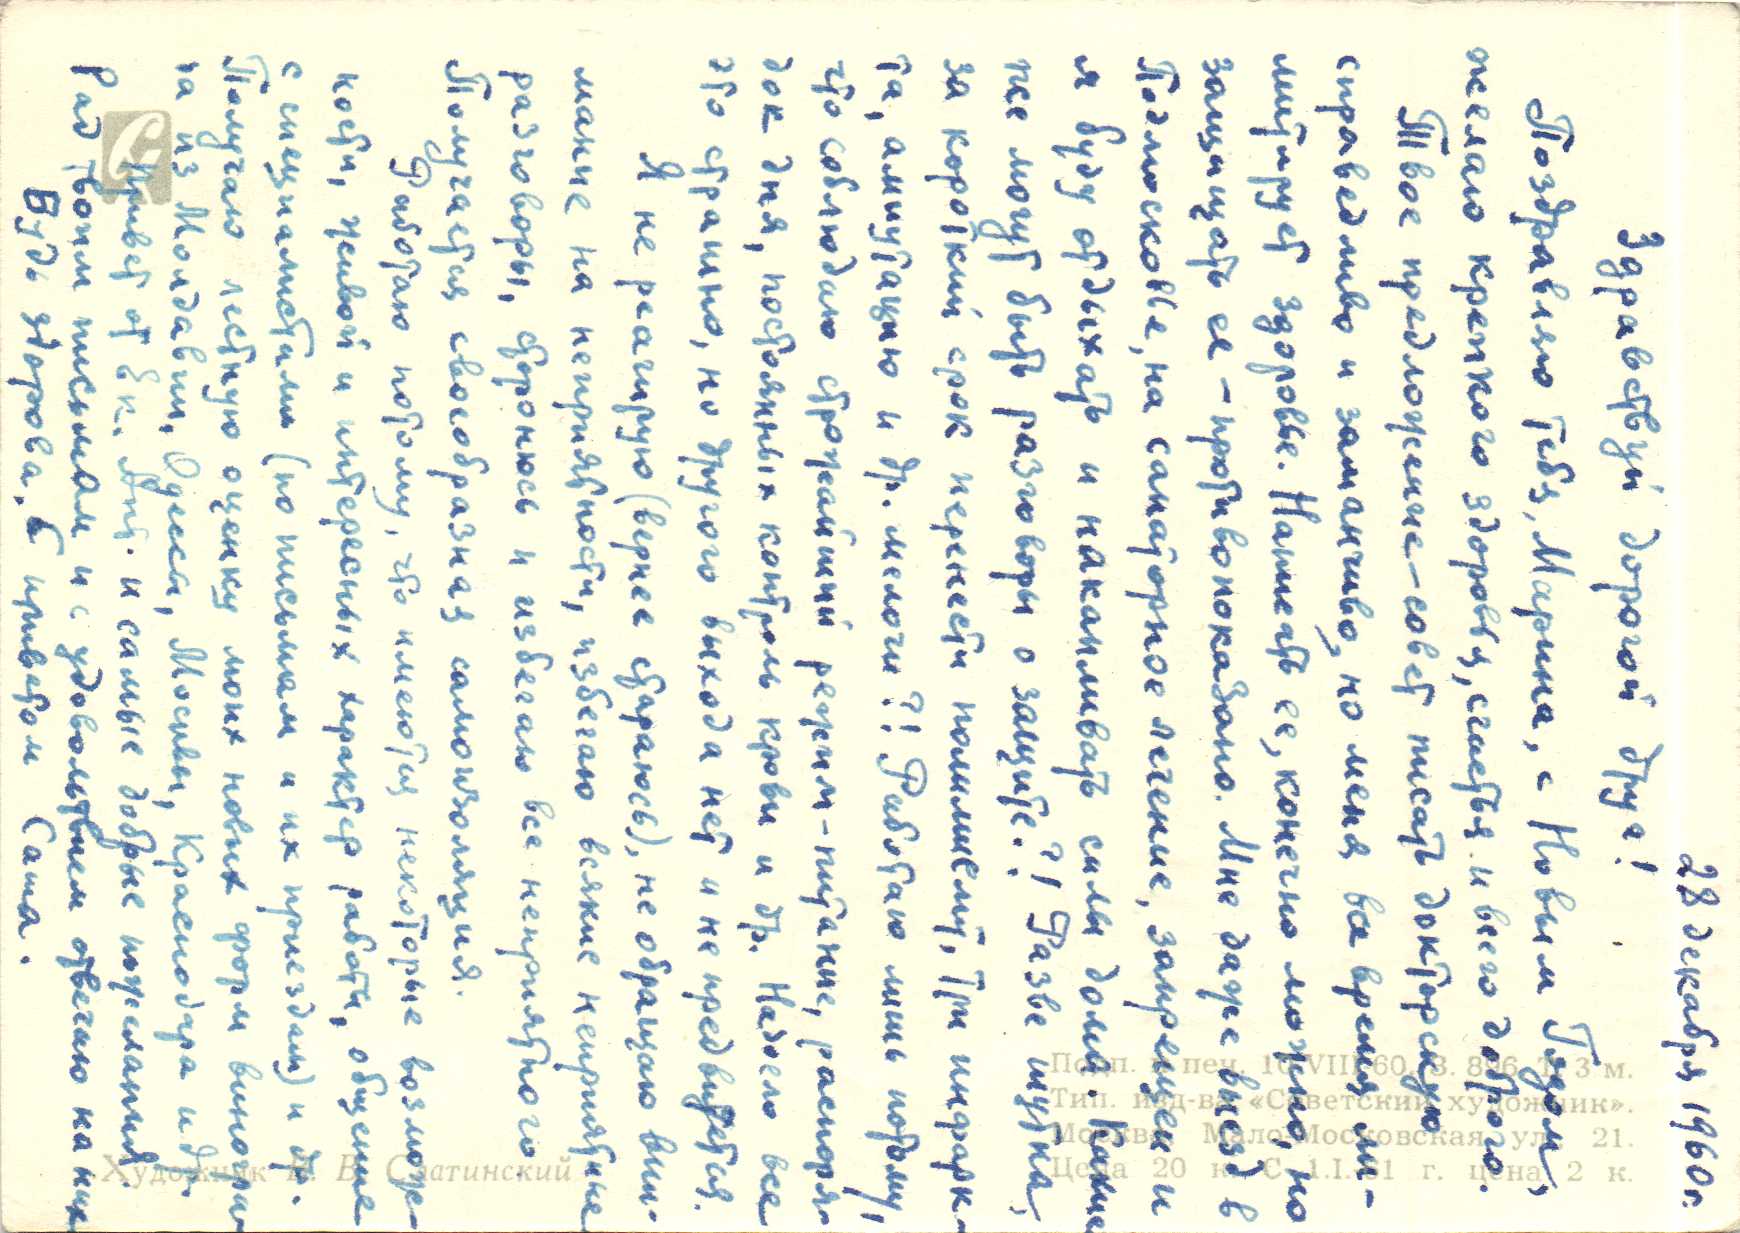 28 декабря 1960 г.
Здравствуй дорогой друг!
Поздравляю тебя, Марина, с Новым Годом,
желаю крепкого здоровья, счастья и всего доброго.
Твое предложение – совет писать докторскую
справедливо и заманчиво, но меня все время ли-
митирует здоровье. Написать ее, конечно можно, но
защищать ее – противопоказано. Мне даже выезд в
Подмосковье, на санаторное лечение, запрещен и
я буду отдыхать и накапливать силы дома. Какие
же могут быть разговоры о защите?! Разве шутка,
за короткий срок перенести полиомиелит, три инфарк-
та, ампутацию и др. мелочи?! Работаю лишь потому,
что соблюдаю строжайший режим – питание, распоря-
док дня, постоянных контроль крови и др. Надоело все
это страшно, но другого выхода нет и не предвидется.
Я не реагирую (вернее стараюсь), не обращаю вни-
мание на неприятности, избегаю всякие неприятные
разговоры, сторонюсь и избегаю все неприятного.
Получается своеобразная самоизоляция.
Работаю потому, что имеются некоторые возмож-
ности, живой и интересных характер работы, общение
с специалистами (по письмам и их приездам) и др.
Получаю лестную оценку моих новых форм виногра-
да из Молдавии, Одессы, Москвы, Краснодара и др.
Привет от Ек. Ант. и самые добрые пожелания.
Рад твоим письмам и с удовольствием отвечаю на них
Будь здорова. С приветом Саша.
Художник В. Слатинский
Подп. в печ. 10/VIII 60. З. 896 Т. 3 м.
Тип. изд-ва «Советский художник».
Москва, Мало-Московская ул. 21.
Цена 20 к. С 1.I.61 г. цена 2 к.